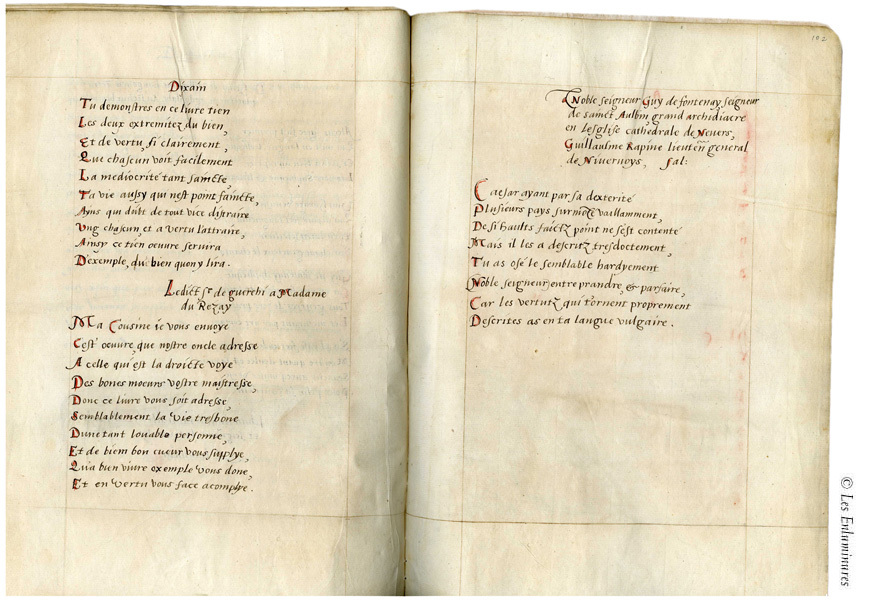 Dixain
Tu demonstres en ce livre tien
Les deux extremitez du bien,
Et de vertu, si clairement,
Que chascun voit facilement
La mediocrité tant saincte,
Ta vie aussy qui nest point faincte,
Ains qui doibt de tout vice distraire
Ung chascun, et a vertu l'attraire,
Ainsy ce tien oeuvre servira
D'exemple, du bien quon y lira.
Ledict sr de guerchi a Madame
du Rezay
Ma Cousine ie vous envoye
Cest oeuvre, que nostre oncle adresse
A celle qui est la droicte voye
Des bones moeurs vostre maistresse,
Donc ce livre vous soit adresse,
Semblablement la vie tresbone
Dune tant louable personne,
Et de biem bon cueur vous supplye,
Qu'a bien vivre exemple vous done,
Et en vertu vous face acomplye.
102
A Noble seigneur Guy de fontenay, seigneur
de sainct Aulbin, grand archidiacre
en lesglise cathedrale de Nevers,
Guillaulme Rapine lieuten̄ general
de Nivernoys, sal:
Caesar ayant par sa dexterité
Plusieurs pays surmōté vaillamment,
De si haults faictz point ne sest contenté
Mais il les a descritz tresdoctement,
Tu as osé le semblable hardyement
Noble seigneur entreprandre, & parfaire,
Car les vertutz qui t'ornent proprement
Descrites as en ta langue vulgaire.
© Les Enluminures